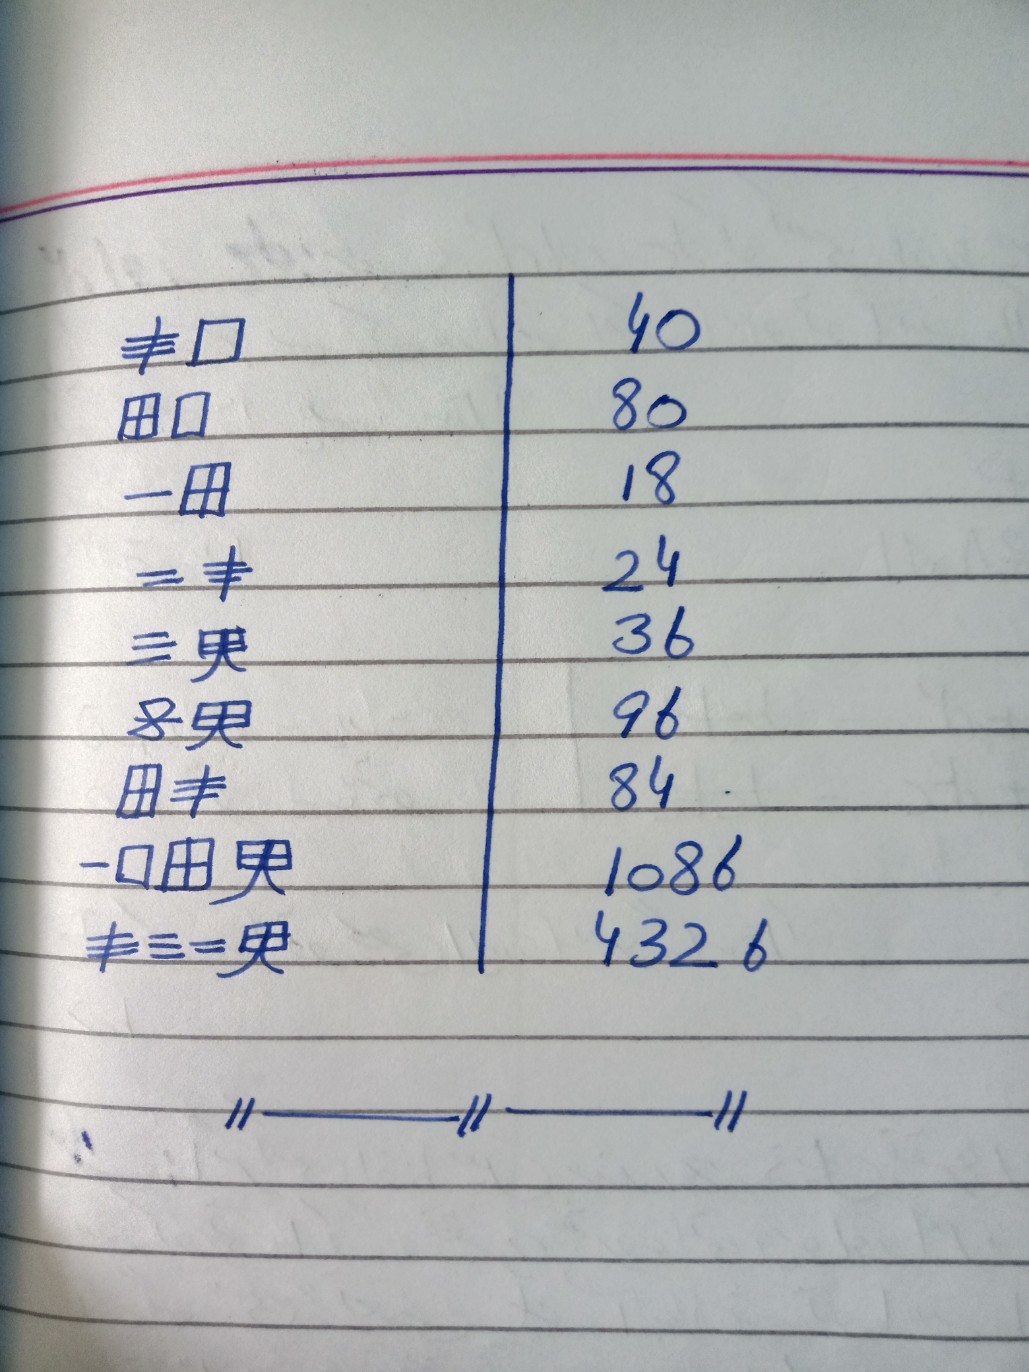 丰口 40
田口 80
一田 18
二丰 24
三男 36
子男 96
田丰 84
一口田男 1086
丰三二男 4326